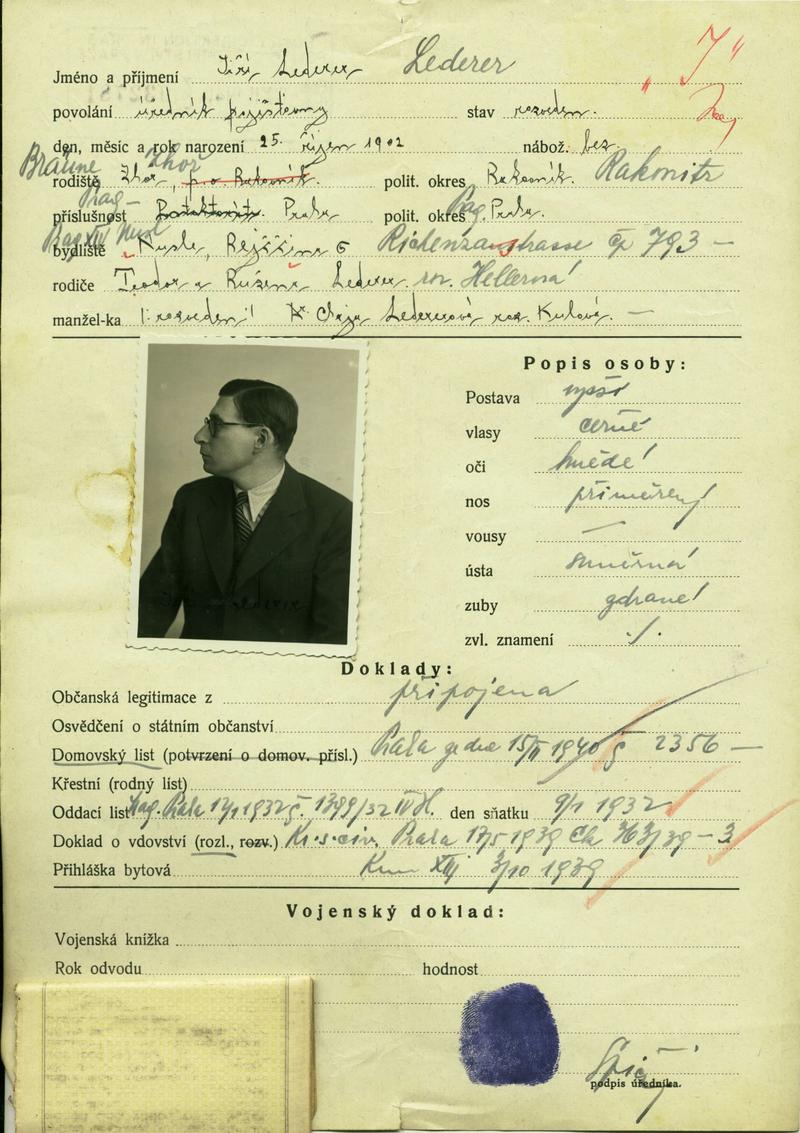 Jméno a příjmení Jiří Lederer Lederer „J“
povolání úředník pojišťovny stav rozveden.
den, měsíc a rok narození 25. říjen 1902 nábož. bez
Zhoř
rodiště Zhoř, p. o. Rakovník. polit. okres Rakovník. Rakonitz
Prag –
příslušnost Praha polit. okres Prag. Praha.
Prag XIV Nusl
bydliště Nusle, Rejčina 6 Richenzastrasse čp 793 —
rodiče Teodor a Růžena Lederer. roz. Hellerová
manžel-ka /: rozveden :/ Ledererová roz. —
Popis osoby:
Postava vyšší
vlasy černé
oči hnědé
nos přiměřený
vousy —
ústa souměrná
zuby zdravé
zvl. znamení ./.
Doklady:
Občanská legitimace z připojena
Osvědčení o státním občanství
Domovský list (potvrzení o domov. přísl.) Praha ze dne 15/II 1940 č 2356 —
Křestní (rodný list)
Oddací list Mag. Praha 12/1 1932 č. 1399/32 IV H. den sňatku 9/1 1932
Doklad o vdovství (rozl., rozv.) Kr. s. civ. Praha 17/5 1939 Ck 3/39 – 3
Přihláška bytová Kom XIII 3/10 1939
Vojenský doklad:
Vojenská knížka
Rok odvodu hodnost
podpis úředníka.